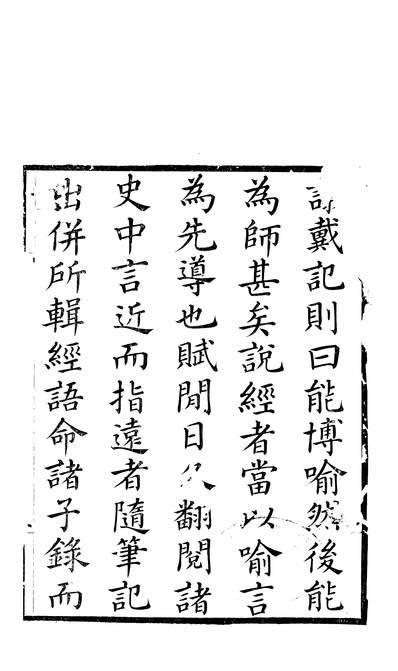 戴記則曰能博喻然後能
為師甚矣說經者當以喻言
為先導也賦閒日久翻閱諸
史中言近而指遠者隨筆記
出併所輯經語命諸子錄而